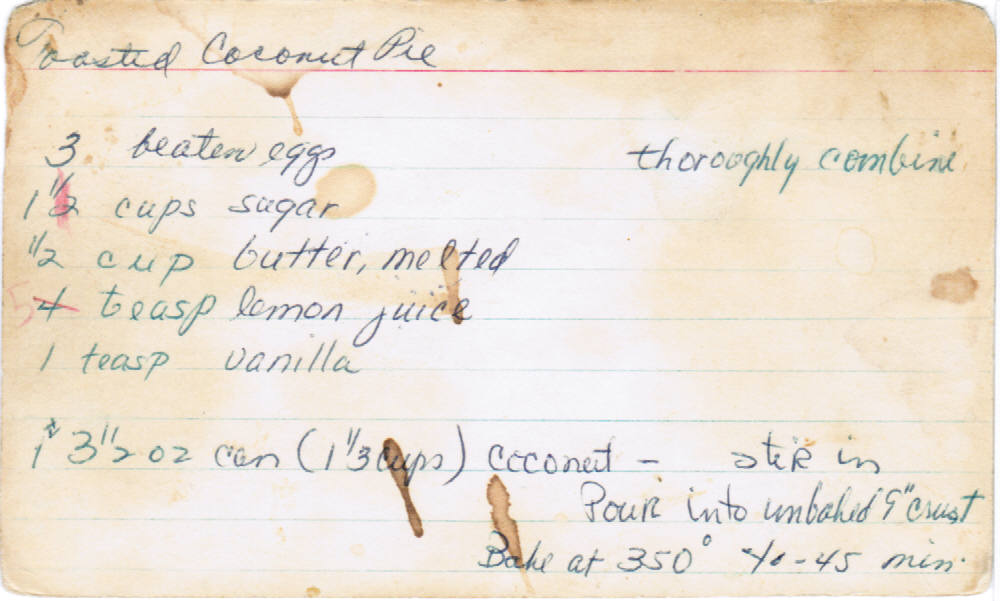 Toasted Coconut Pie
3 beaten eggs thoroughly combine
1 1/2 cups sugar
1/2 cup butter, melted
5 4 teasp lemon juice
1 teasp vanilla
1 3 1/2 oz can (1 1/3 cups) coconut - stir in
Pour into unbaked 9" crust
Bake at 350° 40-45 min.